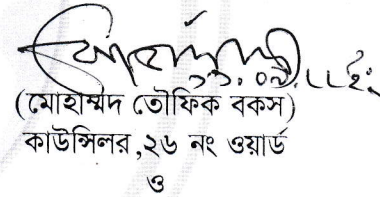 (মোহাম্মদ তৌফিক বকস)
কাউন্সিলর,২৬ নং ওয়ার্ড
ও